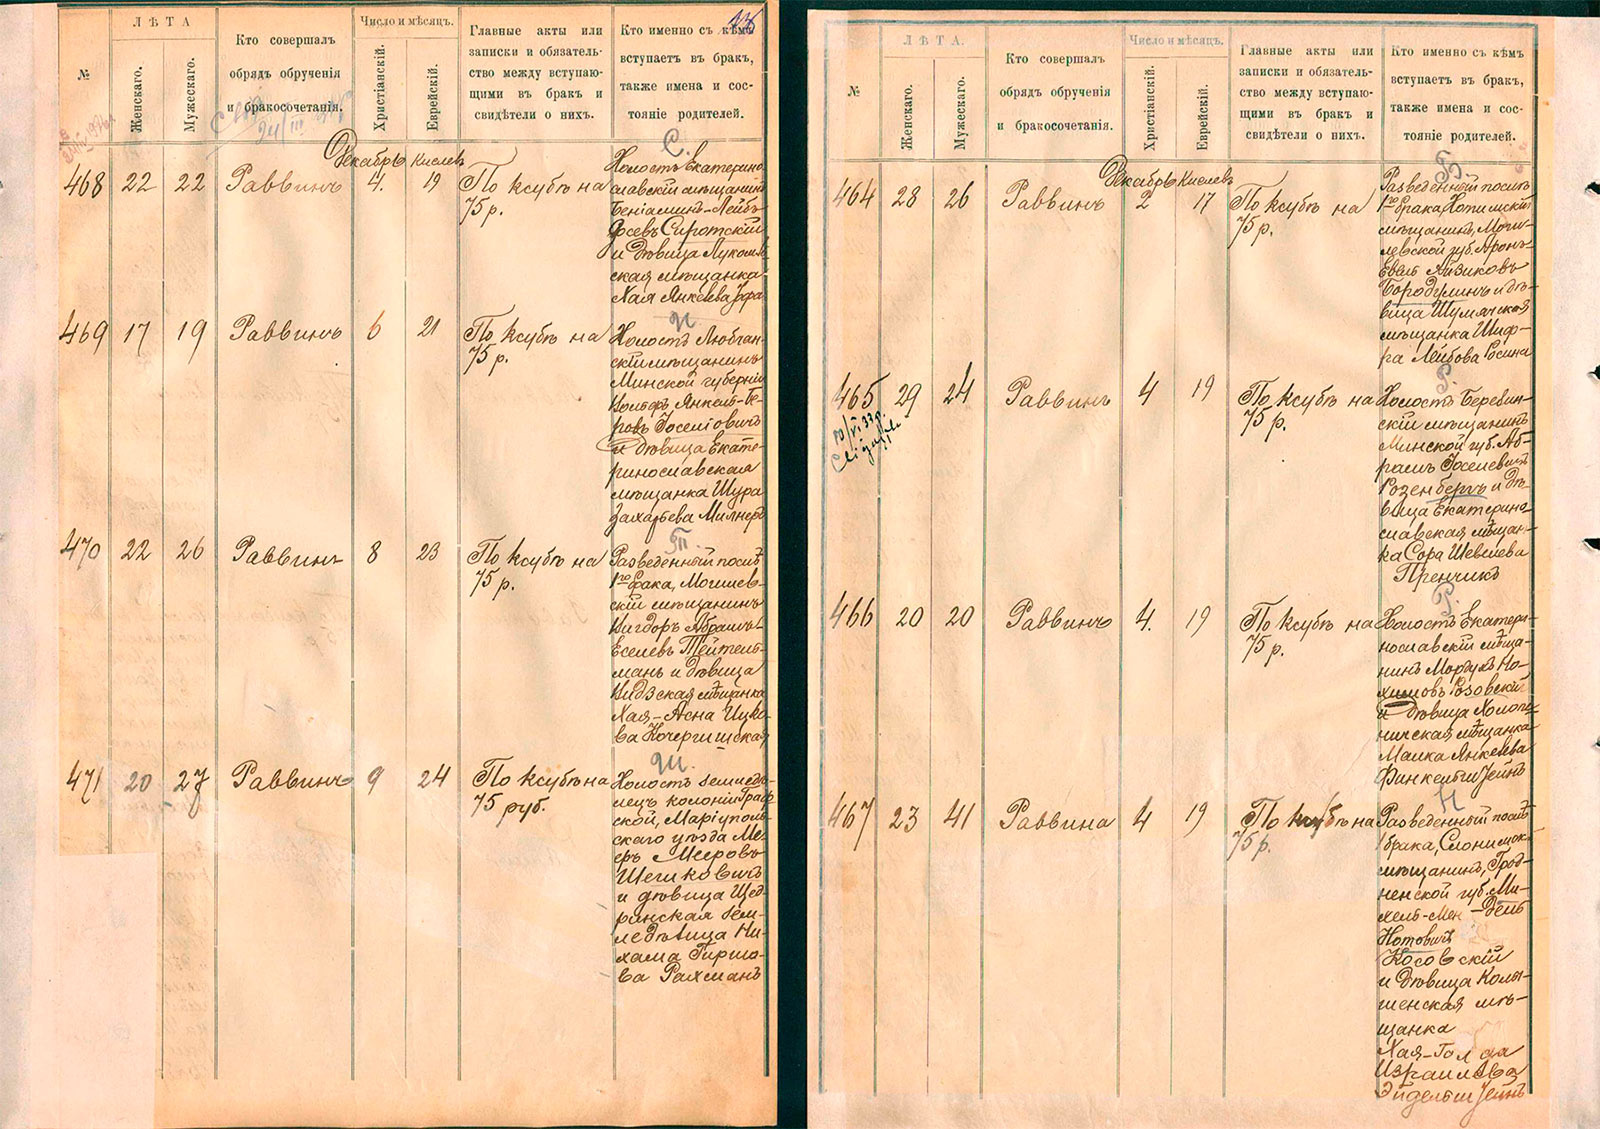 №
ЛѢТА
Женскаго.
Мужескаго.
Кто совершалъ
обрядъ обрученія
и бракосочетанія.
Число и мѣсяцъ.
Христіанскій.
Еврейскій.
Главные акты или
записки и обязатель-
ство между вступаю-
щими въ бракъ и
свидѣтели о нихъ.
Кто именно съ кѣмъ
вступаетъ въ бракъ,
также имена и сос-
тояніе родителей.
Декабрь Кислевъ
468 22 22 Раввинъ 4. 19 По ксубѣ на
75 р.
С.
Холостъ Екатерино-
славскій мѣщанинъ
Беніаминъ-Лейбъ
Сиротскій
и дѣвица Лукомль-
ская мѣщанка
Хая Янкелева
469 17 19 Раввинъ 6 21 По ксубѣ на
75 р.
Холостъ Любчан-
скій мѣщанинъ
Минской губерніи
Вольфъ Янкель-Бе-
ровъ Іоселіовичъ
и дѣвица Екате-
ринославская
мѣщанка Шура
Захарьева Милнеръ
470 22 26 Раввинъ 8 23 По ксубѣ на
75 р.
Разведенный послѣ
1го брака, Могилев-
скій мѣщанинъ
Вигдоръ Абрамъ-
Еселевъ Тейтель-
манъ и дѣвица
Видзская мѣщанка
Хая-Асна Ицко-
ва Кочергишская
471 20 27 Раввинъ 9 24 По ксубѣ на
75 руб.
Ш.
Холостъ земледѣ-
лецъ колоніи Граф-
ской, Маріуполь-
скаго уѣзда Ме-
еръ Мееровъ
Шеиковичъ
и дѣвица Щед-
ринская зем-
ледѣлица Ни-
хама Гиршо-
ва Рахманъ
№
ЛѢТА.
Женскаго.
Мужескаго.
Кто совершалъ
обрядъ обрученія
и бракосочетанія.
Число и мѣсяцъ.
Христіанскій.
Еврейскій.
Главные акты или
записки и обязатель-
ство между вступаю-
щими въ бракъ и
свидѣтели о нихъ.
Кто именно съ кѣмъ
вступаетъ въ бракъ,
также имена и сос-
тояніе родителей.
Декабрь Кислевъ
464 28 26 Раввинъ 2 17 По ксубѣ на
75 р.
Б
Разведенный послѣ
1го брака, Хотимскій
мѣщанинъ, Моги-
левской губ. Аронъ-
Евель Айзиковъ
Бородулинъ и дѣ-
вица Шумячская
мѣщанка Шиф-
ра Лейбова Росина
465 29 24 Раввинъ 4 19 По ксубѣ на
75 р.
Р.
Холостъ Березин-
скій мѣщанинъ
Минской губ. Аб-
рамъ Іоселевичъ
Розенбергъ и дѣ-
вица Екатерино-
славская мѣщан-
ка Сора Шевелева
Пренчикъ
466 20 20 Раввинъ 4. 19 По ксубѣ на
75 р.
Р.
Холостъ Екатери-
нославскій мѣща-
нинъ Мордухъ Но-
химовъ Розовскій
и дѣвица Холопе-
ничская мѣщанка
Малка Янкелева
Финкельштейнъ
467 23 41 Раввина 4 19 По ксубѣ на
75 р.
К
Разведенный послѣ
1 брака, Слонимск.
мѣщанинъ, Грод-
ненской губ. Ми-
хель-Мен-дель
Нотовичъ
Косовскій
и дѣвица Колы-
шенская мѣ-
щанка
Хая-Голда
Израилева
Эйдельштейнъ